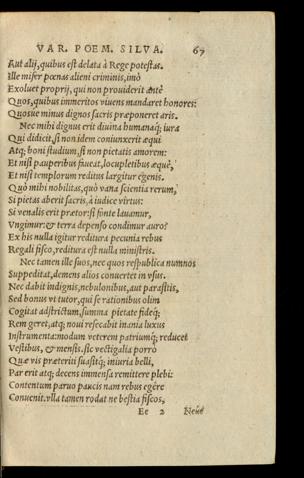 VAR. POEM. SILVA. 67
Aut alij, quibus est delata à Rege potestas.
Ille miser pœnas alieni criminis, imò
Exoluet proprij, qui non prouiderit ántè
Quos, quibus immeritos viuens mandaret honores:
Quosue minus dignos sacris præponeret aris.
Nec mihi dignus erit diuina humanaq; iura
Qui didicit, si non idem coniunxerit æqui
Atq; boni studium, si non pietatis amorem:
Et nisi pauperibus fiueat, locupletibus æquè,
Et nisi templorum reditus largitur egenis.
Quò mihi nobilitas, quò vana scientia rerum,
Si pietas aberit sacris, à iudice virtus:
Si venalis erit prætor: si fonte lauamur,
Vngimur: & terra depenso condimur auro?
Ex his nulla igitur reditura pecunia rebus
Regali fisco, reditura est nulla ministris.
Nec tamen ille suos, nec quos respublica numnos
Suppeditat, demens alios conuertet in vsus.
Nec dabit indignis, nebulonibus, aut parasitis,
Sed bonus vt tutor, qui se rationibus olim
Cogitat adstrictum, summa pietate fideq;
Rem geret, atq; noui resecabit inania luxus
Instrumenta: modum veterem patriumq; reducet
Vestibus, & mensis. sic vectigalia porrò
Quæ vis præteriti suasitq; iniuria belli,
Par erit atq; decens immensa remittere plebi:
Contentum paruo paucis nam rebus egére
Conuenit. vlla tamen rodat ne bestia fiscos,
Ee 2